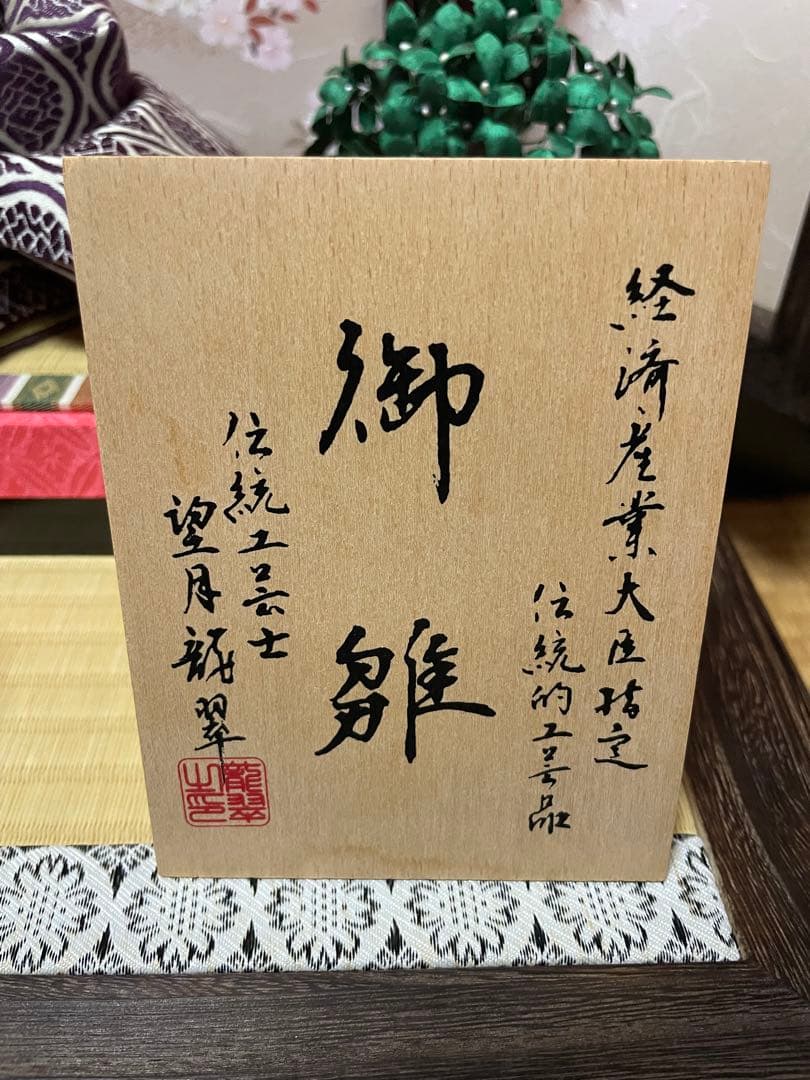 経済産業大臣指定
伝統的工芸品
御雛
伝統工芸士
望月龍翠
龍翠之印